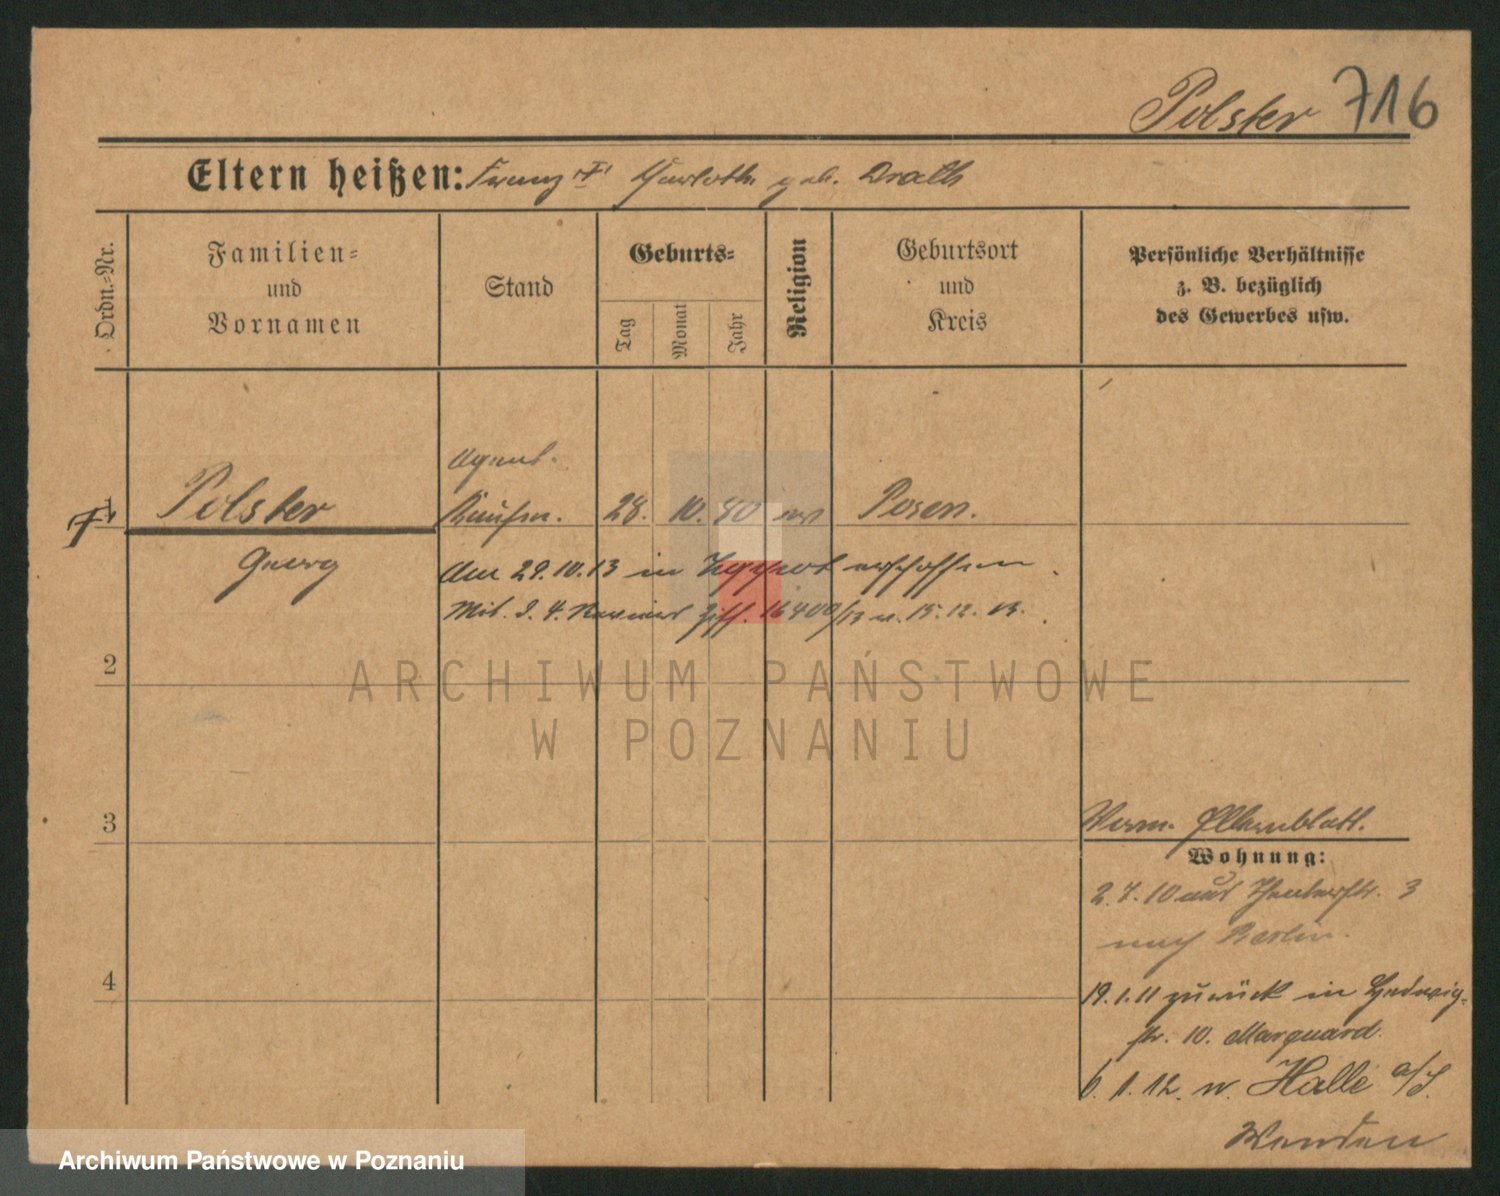 Polster 716
Eltern heißen: Franz geb. Drath
Ordn.-Nr.
Familien-
und
Vornamen
Stand
Geburts-
Tag
Monat
Jahr
Religion
Geburtsort
und
Kreis
Persönliche Verhältnisse
z. B. bezüglich
des Gewerbes usw.
Agent.
1 Polster Kaufm. 28. 10. 80 ev Posen.
Georg
Am 29.10.13 in erschossen
Mit. d. 4. Reviers 16400/13 v. 15.12.13.
2
3
4
Verm. Elternblatt.
Wohnung:
2.7.10 aus Theaterstr. 3
nach Berlin.
19.1.11 zurück in Hedwig-
str. 10. Marquard.
6.1.12. n. Halle a/S.
Wenden
ARCHIWUM PAŃSTWOWE
W POZNANIU
Archiwum Państwowe w Poznaniu